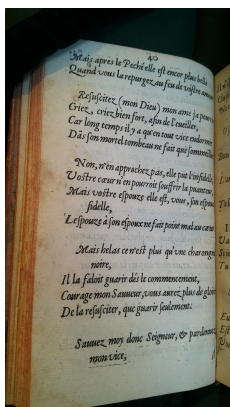 40
Mais apres le Peché elle est encor plus belle
Quand vous la repurgez au feu de vostre amour
Resuscitez (mon Dieu) mon ame ja pourrie
Criez, criez bien fort, afin de l'eueiller,
Car long temps il y a qu'en tout vice endormie
Dās son mortel tombeau ne fait que sommeiller
Non, n'en approchez pas, elle put l'infidelle,
Vostre cœur n'en pourroit souffrir la puanteur,
Mais vostre espouze elle est, vous, son espoux
fidelle,
L'espouze à son espoux ne fait point mal au cœur
Mais helas ce n'est plus qu'vne charongne
noire,
Il la faloit guarir dés le commencement,
Courage mon Sauueur, vous aurez plus de gloire
De la resusciter, que guarir seulement.
Sauuez moy donc Seigneur, & pardonnez
mon vice,